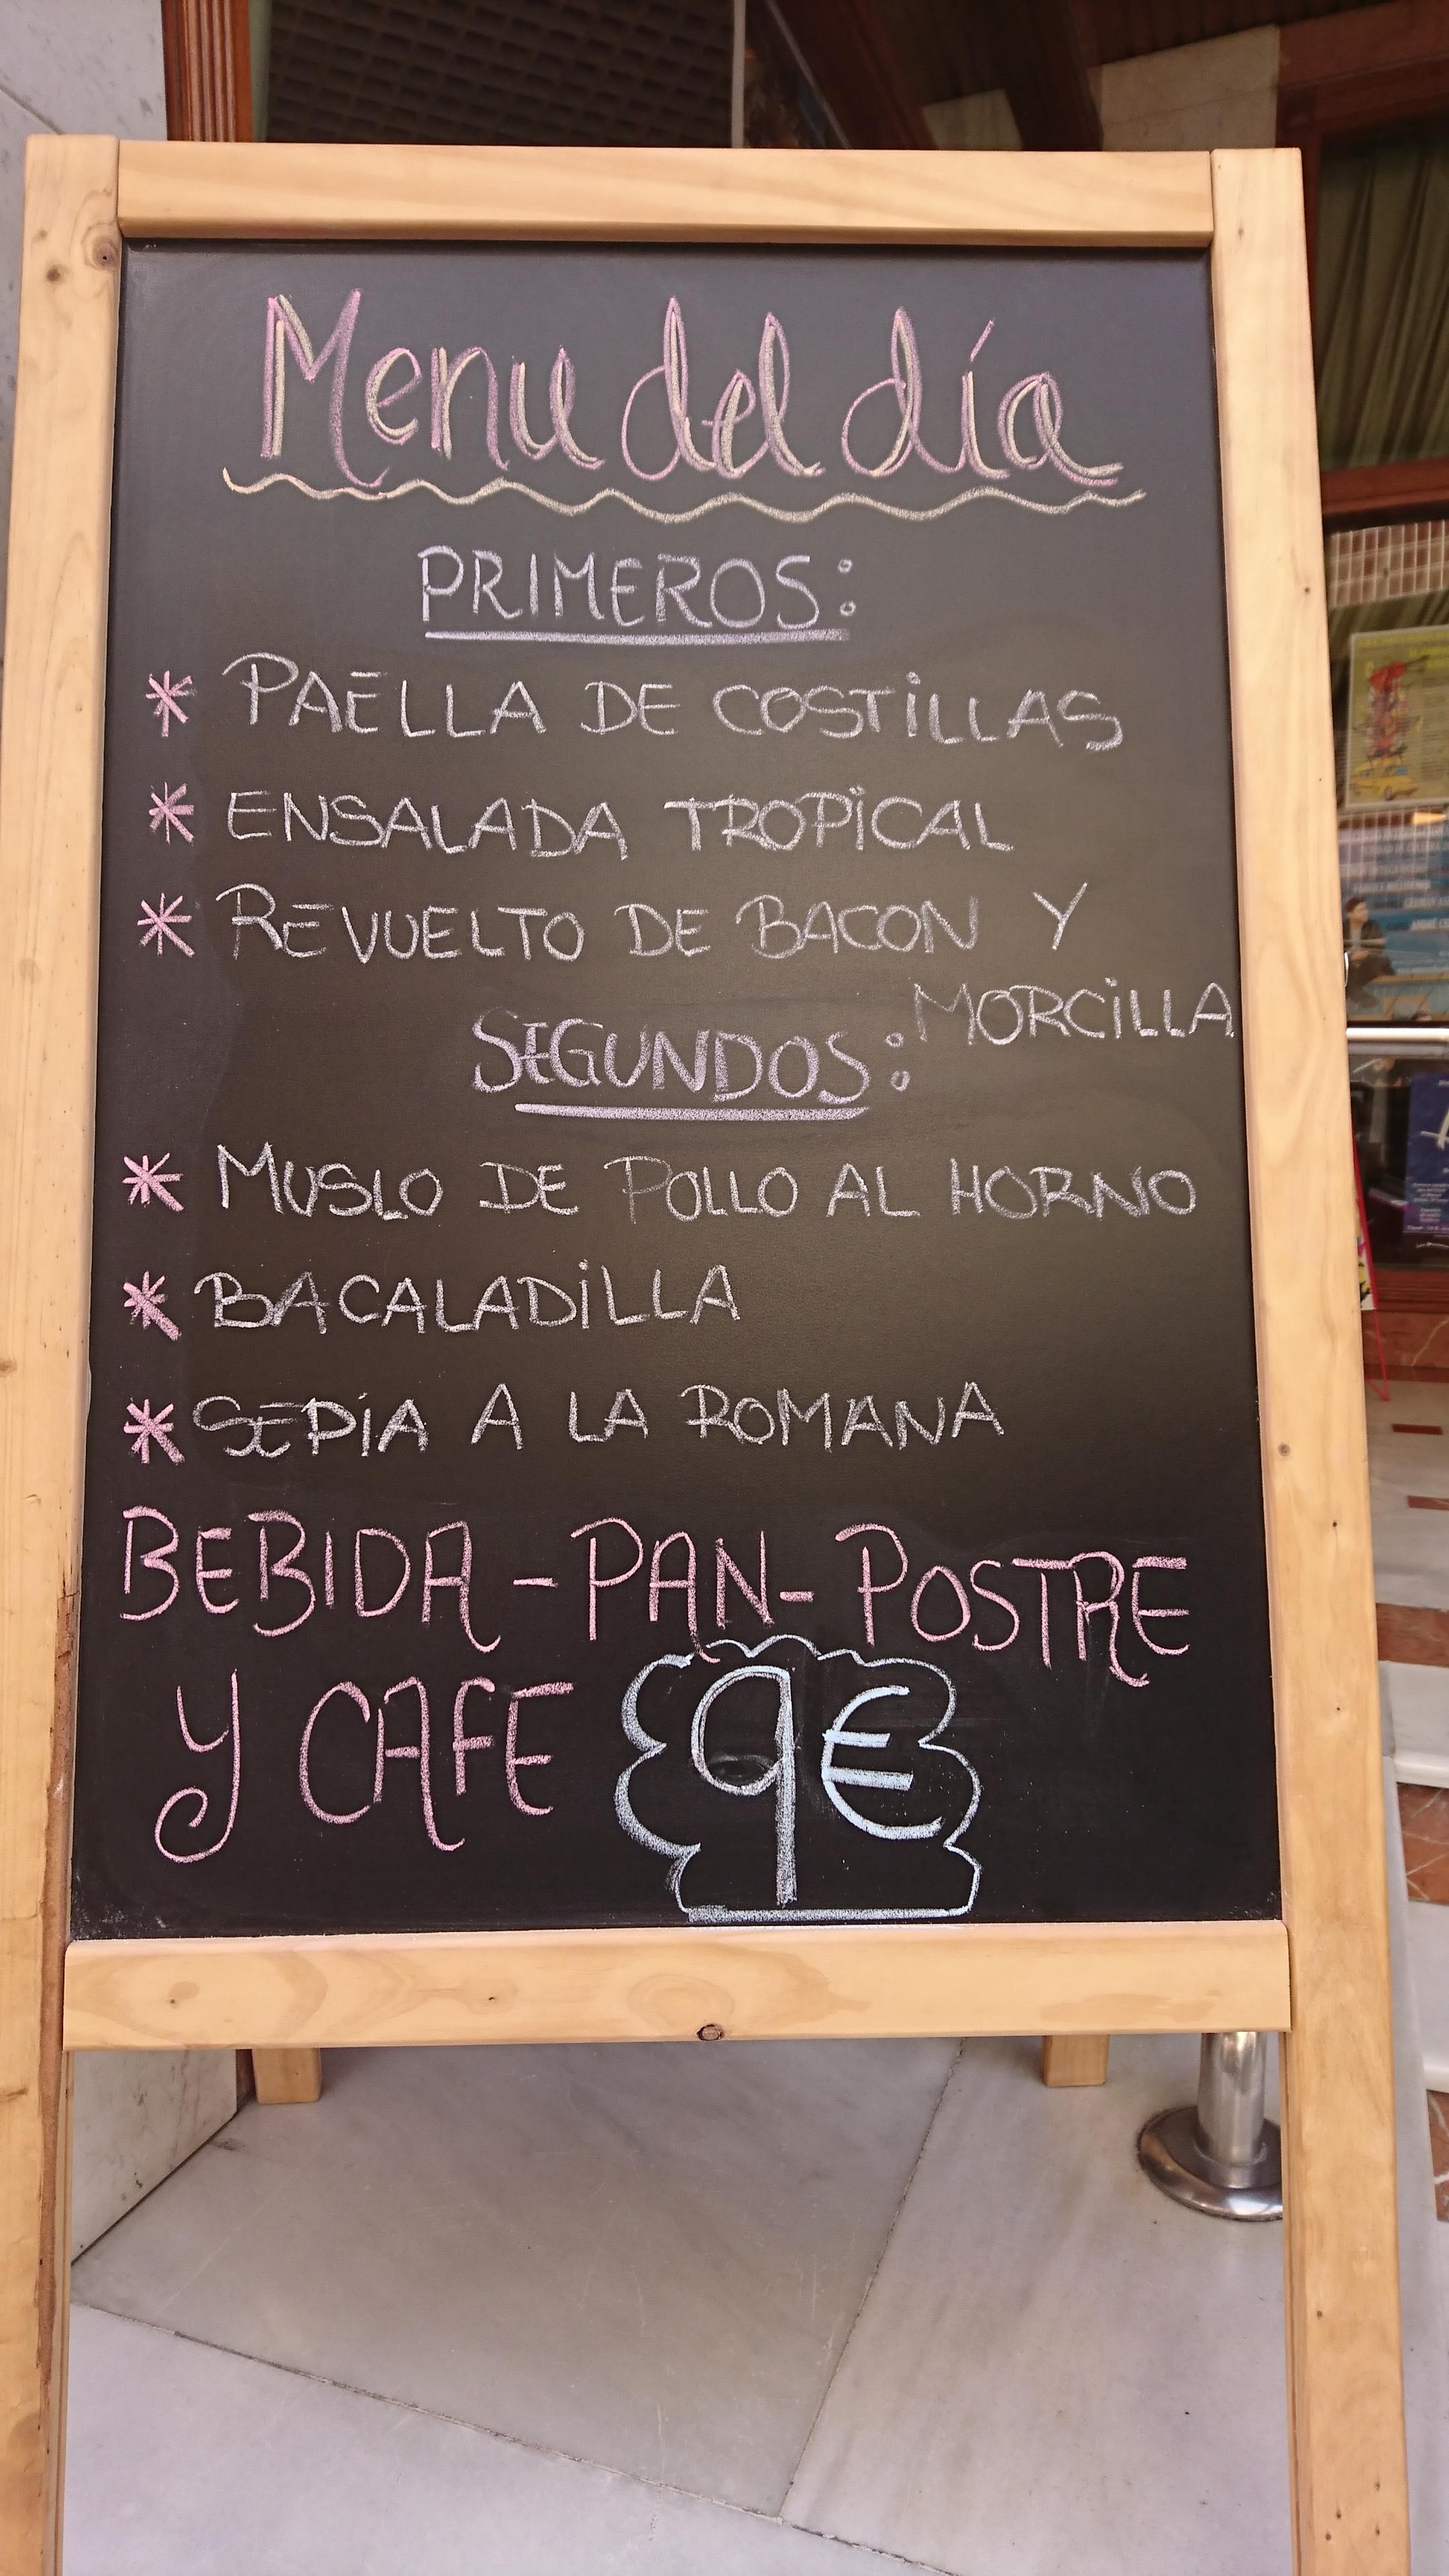 Menu del día
PRIMEROS:
* PAELLA DE COSTILLAS
* ENSALADA TROPICAL
* REVUELTO DE BACON Y
MORCILLA
SEGUNDOS:
* MUSLO DE POLLO AL HORNO
* BACALADILLA
* SEPIA A LA ROMANA
BEBIDA - PAN - POSTRE
Y CAFE 9€